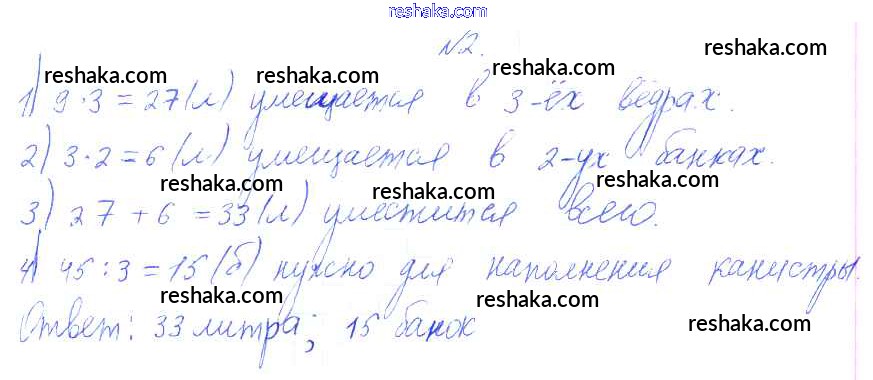 reshaka.com
№2.
reshaka.com
reshaka.com reshaka.com reshaka.com
1) 9·3=27(л) умещается в 3-ёх вёдрах.
2) 3·2=6(л) умещается в 2-ух банках.
reshaka.com reshaka.com reshaka.com
3) 27+6=33(л) уместится всего.
reshaka.com reshaka.com reshaka.com
4) 45:3=15(б) нужно для наполнения канистры.
reshaka.com reshaka.com reshaka.com
Ответ: 33 литра; 15 банок